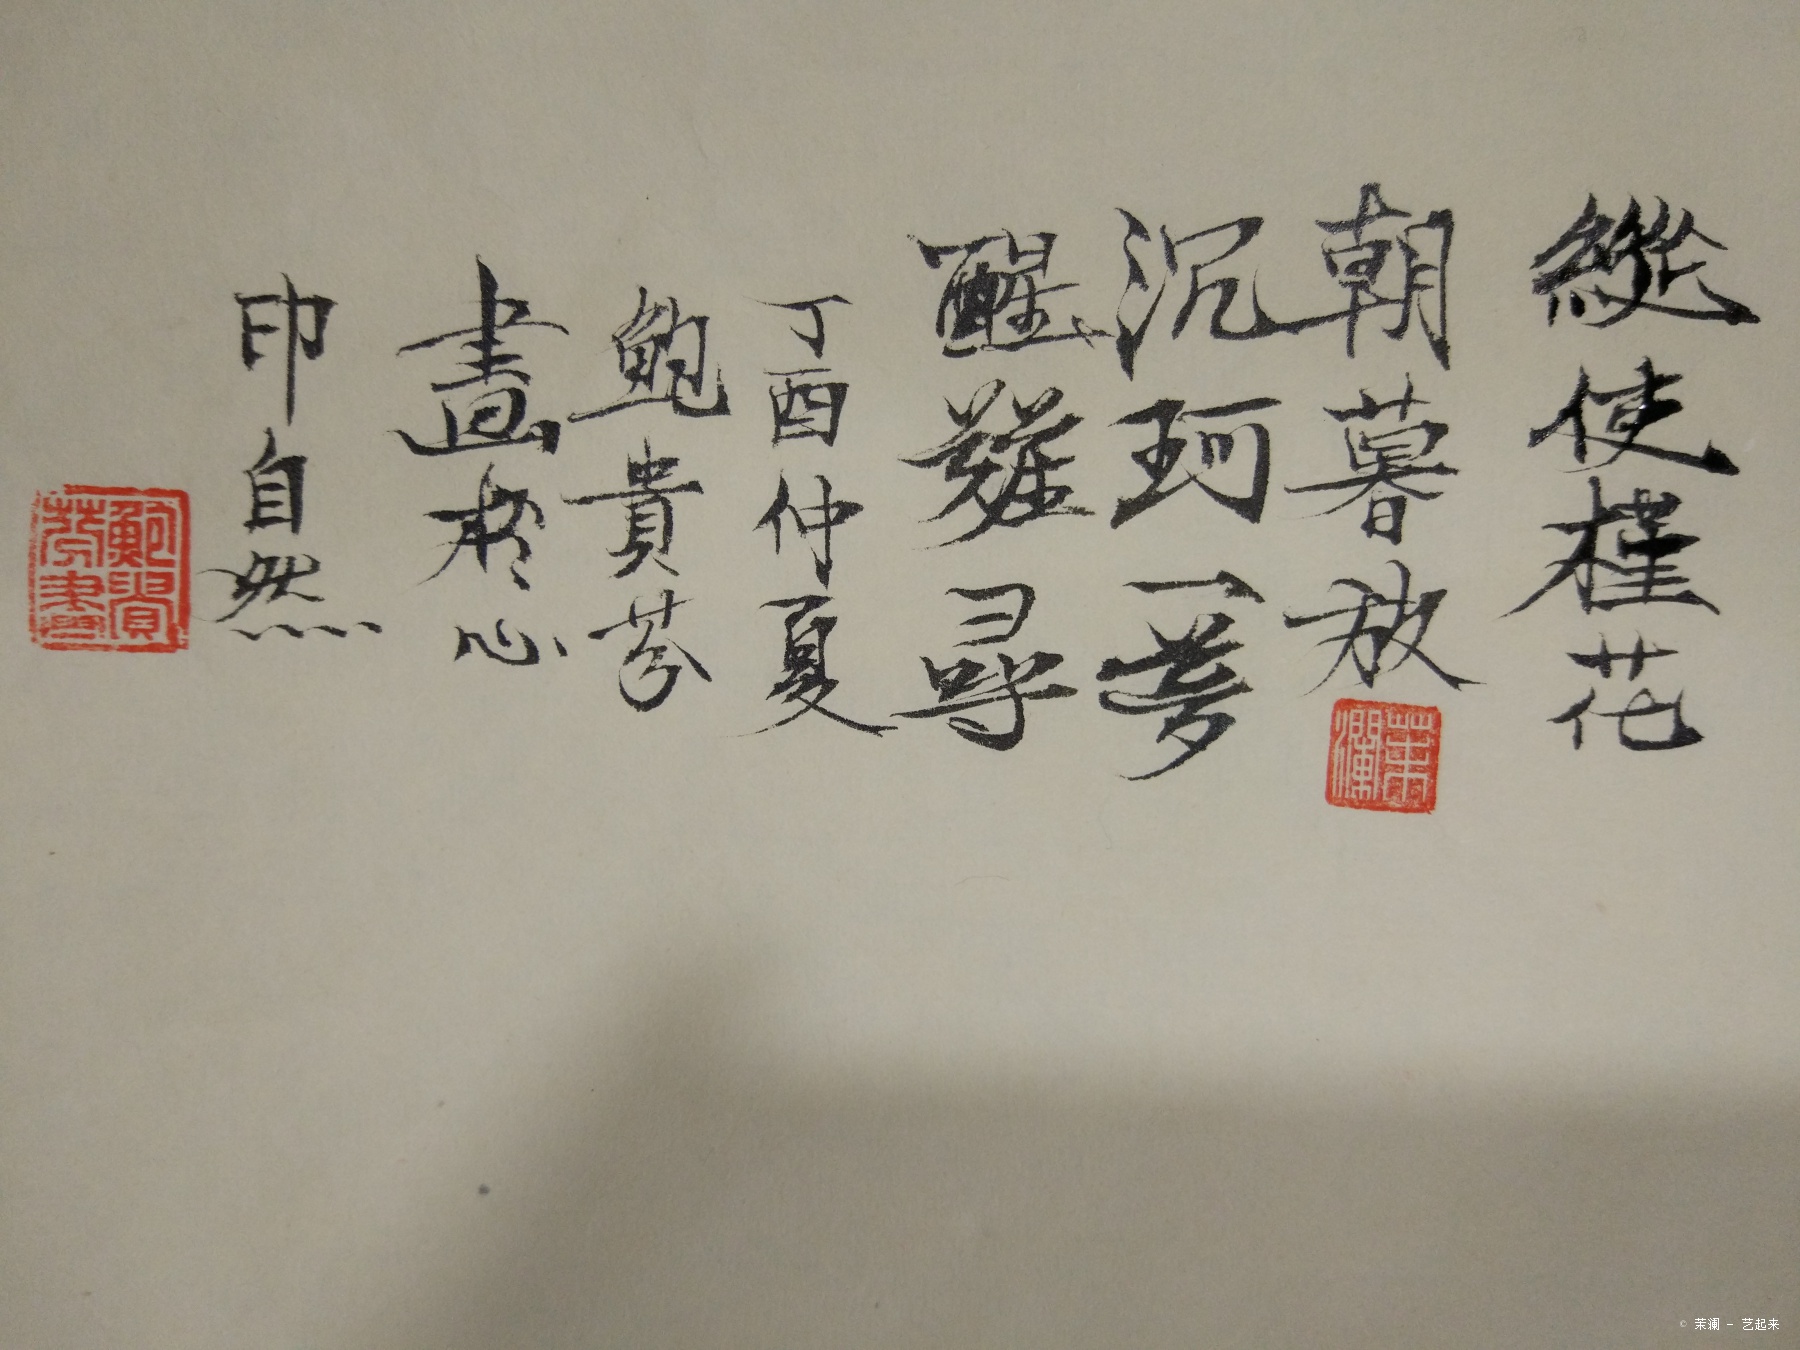 縱使槿花
朝暮放
沉珂一夢
醒難尋
丁酉仲夏
鲍貴芬
畫於心
印自然
茉瀾
鮑貴芬畫
© 茉澜 - 艺起来